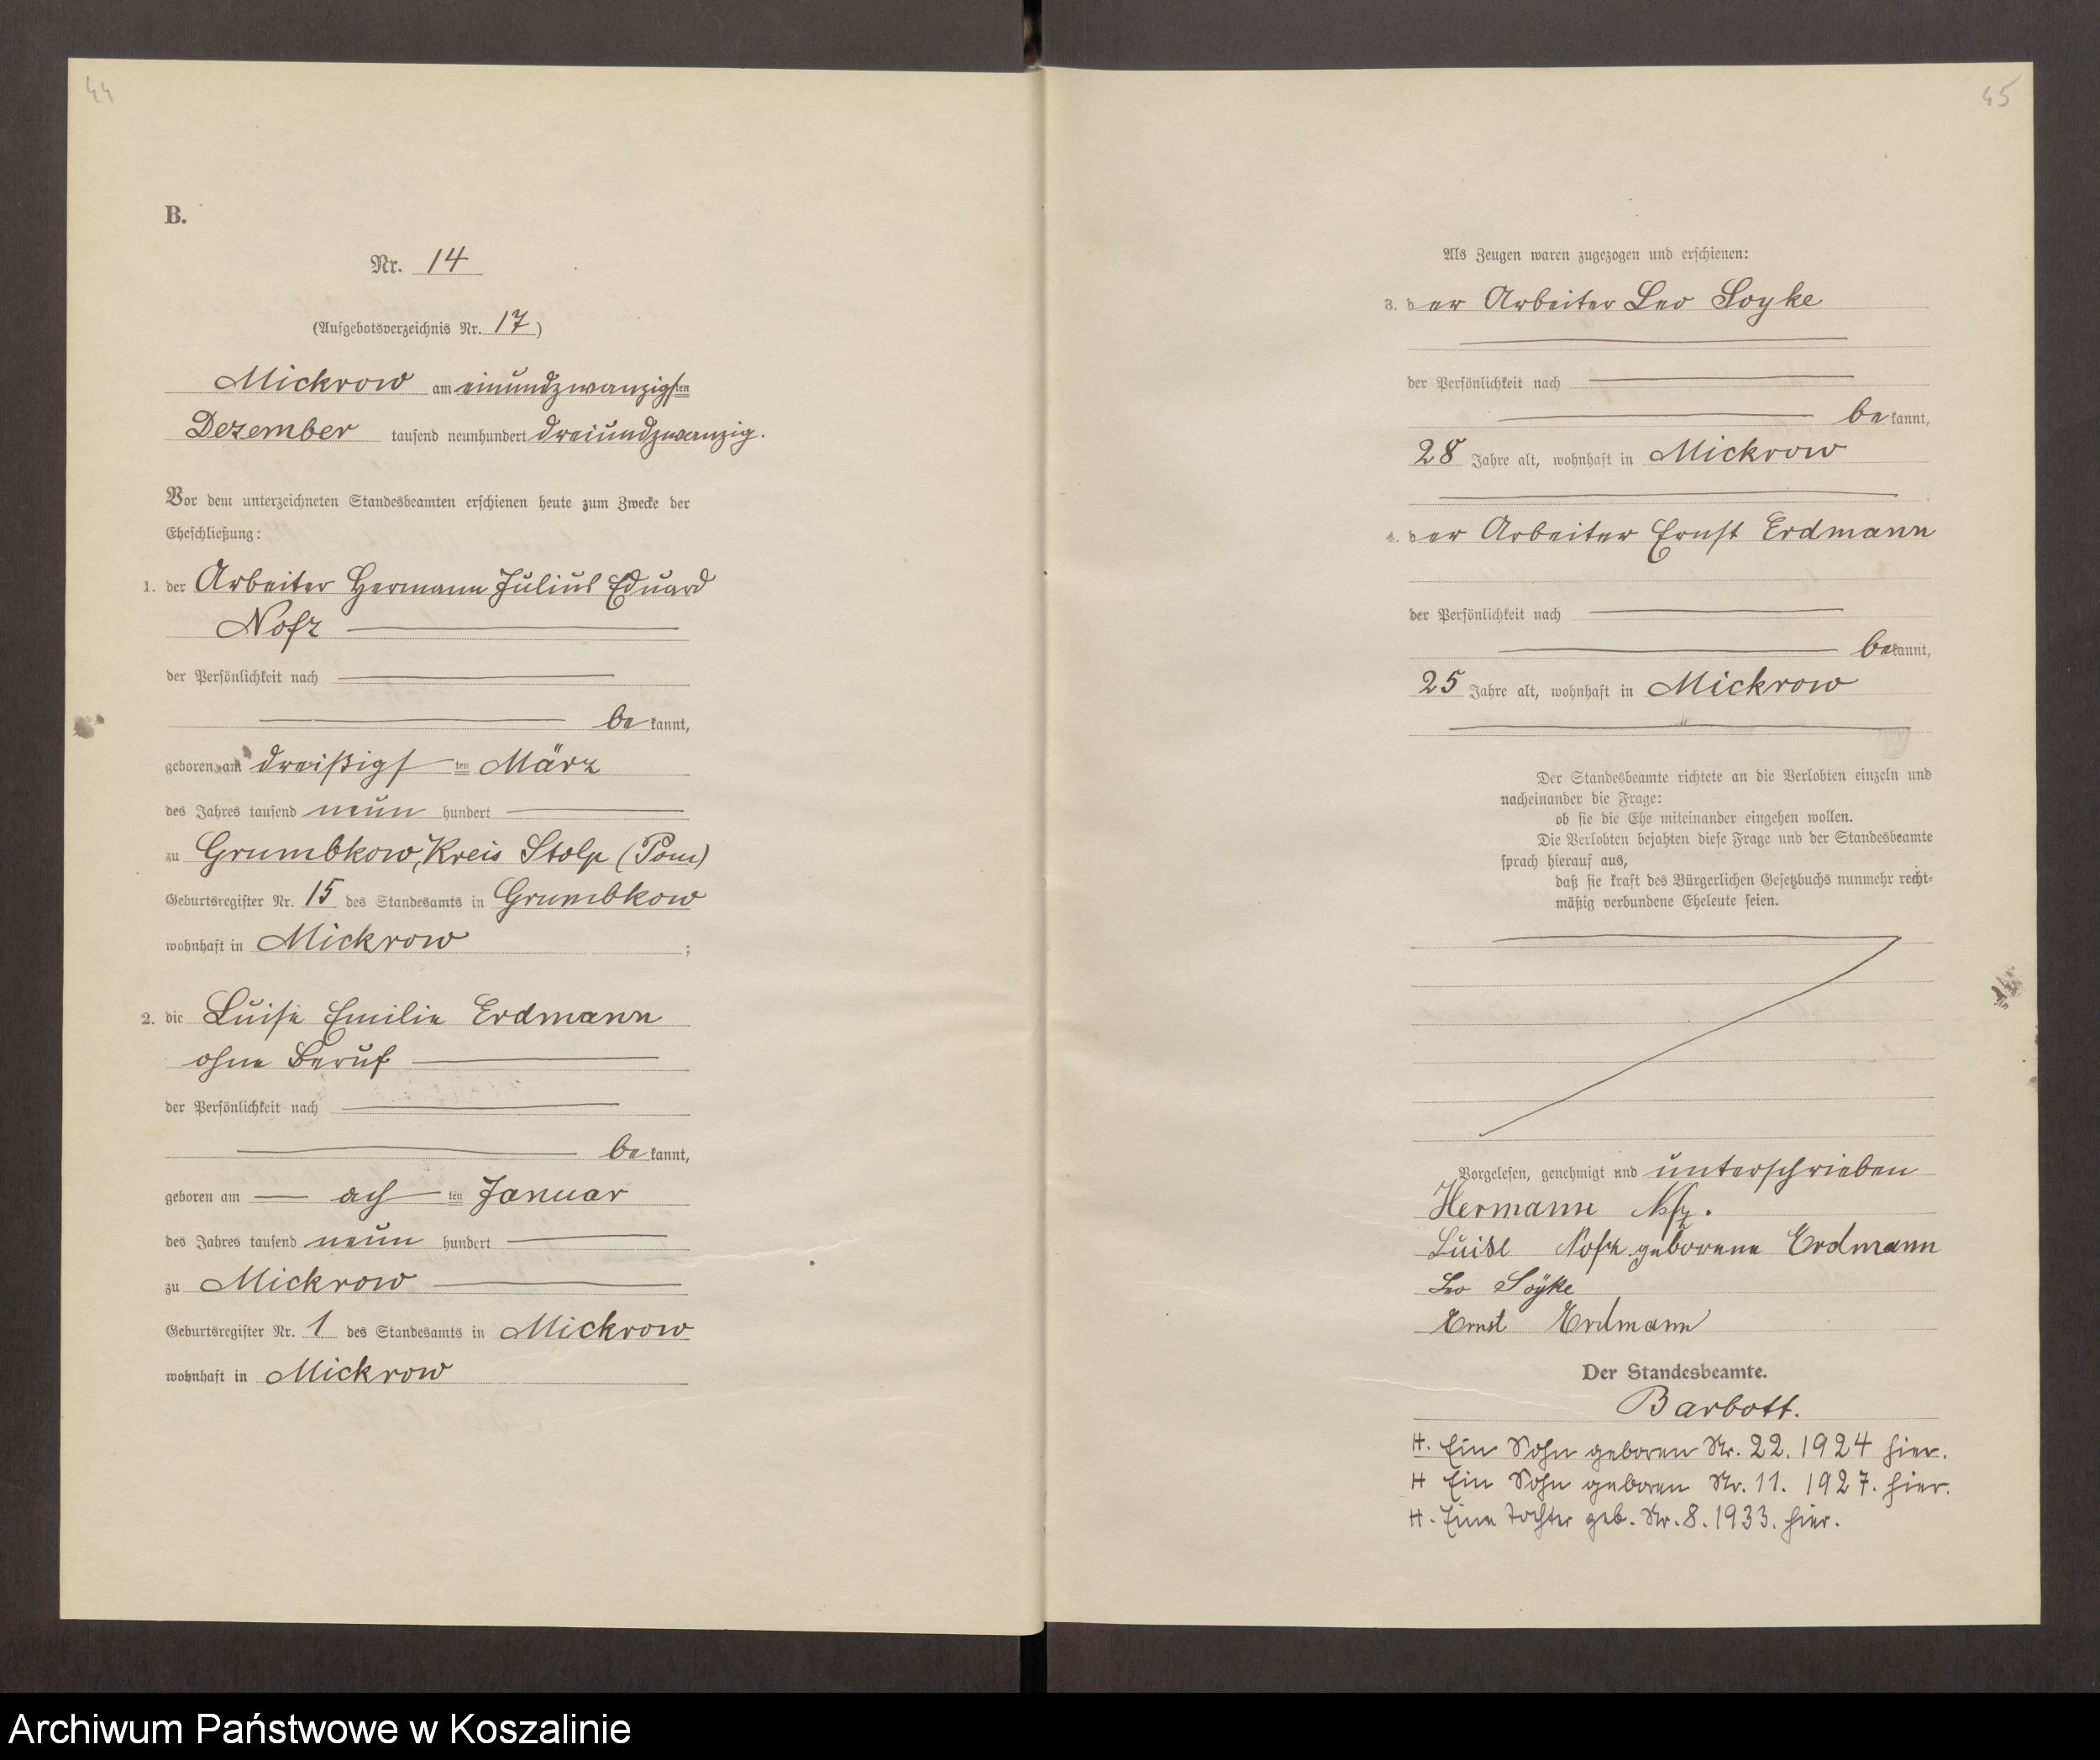 44
B.
Nr. 14
(Aufgebotsverzeichnis Nr. 17)
Mickrow am einundzwanzigsten
Dezember tausend neunhundert dreiundzwanzig.
Vor dem unterzeichneten Standesbeamten erschienen heute zum Zwecke der
Eheschließung:
1. der Arbeiter Hermann Julius Eduard
Nofz
der Persönlichkeit nach
be kannt,
geboren am dreißigs ten März
des Jahres tausend neun hundert
zu Grumbkow, Kreis Stolp (Pom)
Geburtsregister Nr. 15 des Standesamts in Grumbkow
wohnhaft in Mickrow ;
2. die Luise Emilie Erdmann
ohne Beruf
der Persönlichkeit nach
be kannt,
geboren am ach ten Januar
des Jahres tausend neun hundert
zu Mickrow
Geburtsregister Nr. 1 des Standesamts in Mickrow
wohnhaft in Mickrow
45
Als Zeugen waren zugezogen und erschienen:
3. der Arbeiter Leo Soyke
der Persönlichkeit nach
be kannt,
28 Jahre alt, wohnhaft in Mickrow
4. der Arbeiter Ernst Erdmann
der Persönlichkeit nach
be kannt,
25 Jahre alt, wohnhaft in Mickrow
Der Standesbeamte richtete an die Verlobten einzeln und
nacheinander die Frage:
ob sie die Ehe miteinander eingehen wollen.
Die Verlobten bejahten diese Frage und der Standesbeamte
sprach hierauf aus,
daß sie kraft des Bürgerlichen Gesetzbuchs nunmehr recht-
mäßig verbundene Eheleute seien.
Vorgelesen, genehmigt und unterschrieben
Hermann Nofz.
Luise Nofz geborene Erdmann
Leo Söyke
Ernst Erdmann
Der Standesbeamte.
Barbott.
H. Ein Sohn geboren Nr. 22. 1924 hier.
H Ein Sohn geboren Nr. 11. 1927. hier.
H. Eine Tochter geb. Nr. 8. 1933. hier.
Archiwum Państwowe w Koszalinie